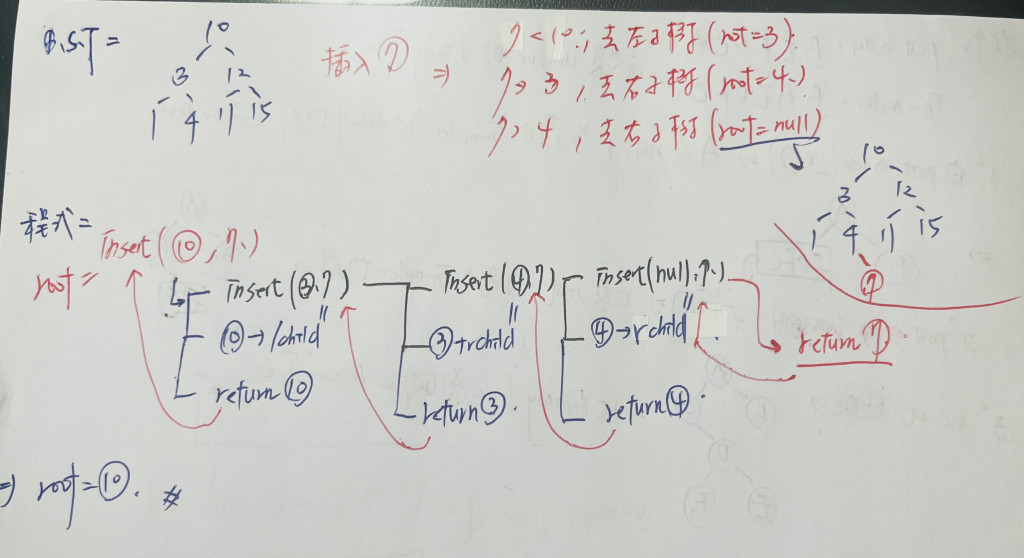 B.S.T =
10
3 12
1 4 11 15
插入 ⑦ ⇒
7 < 10, 去左子樹 (root=3).
7 > 3, 去右子樹 (root=4.)
7 > 4, 去右子樹 (root=null)
10
3 12
1 4 11 15
⑦
程式=
root = insert(⑩, 7.)
insert(③,7) insert(④,7) insert(null,7.)
⑩→lchild" ③→rchild" ④→rchild". return ⑦.
return ⑩ return ③. return ④.
⇒ root=⑩. #